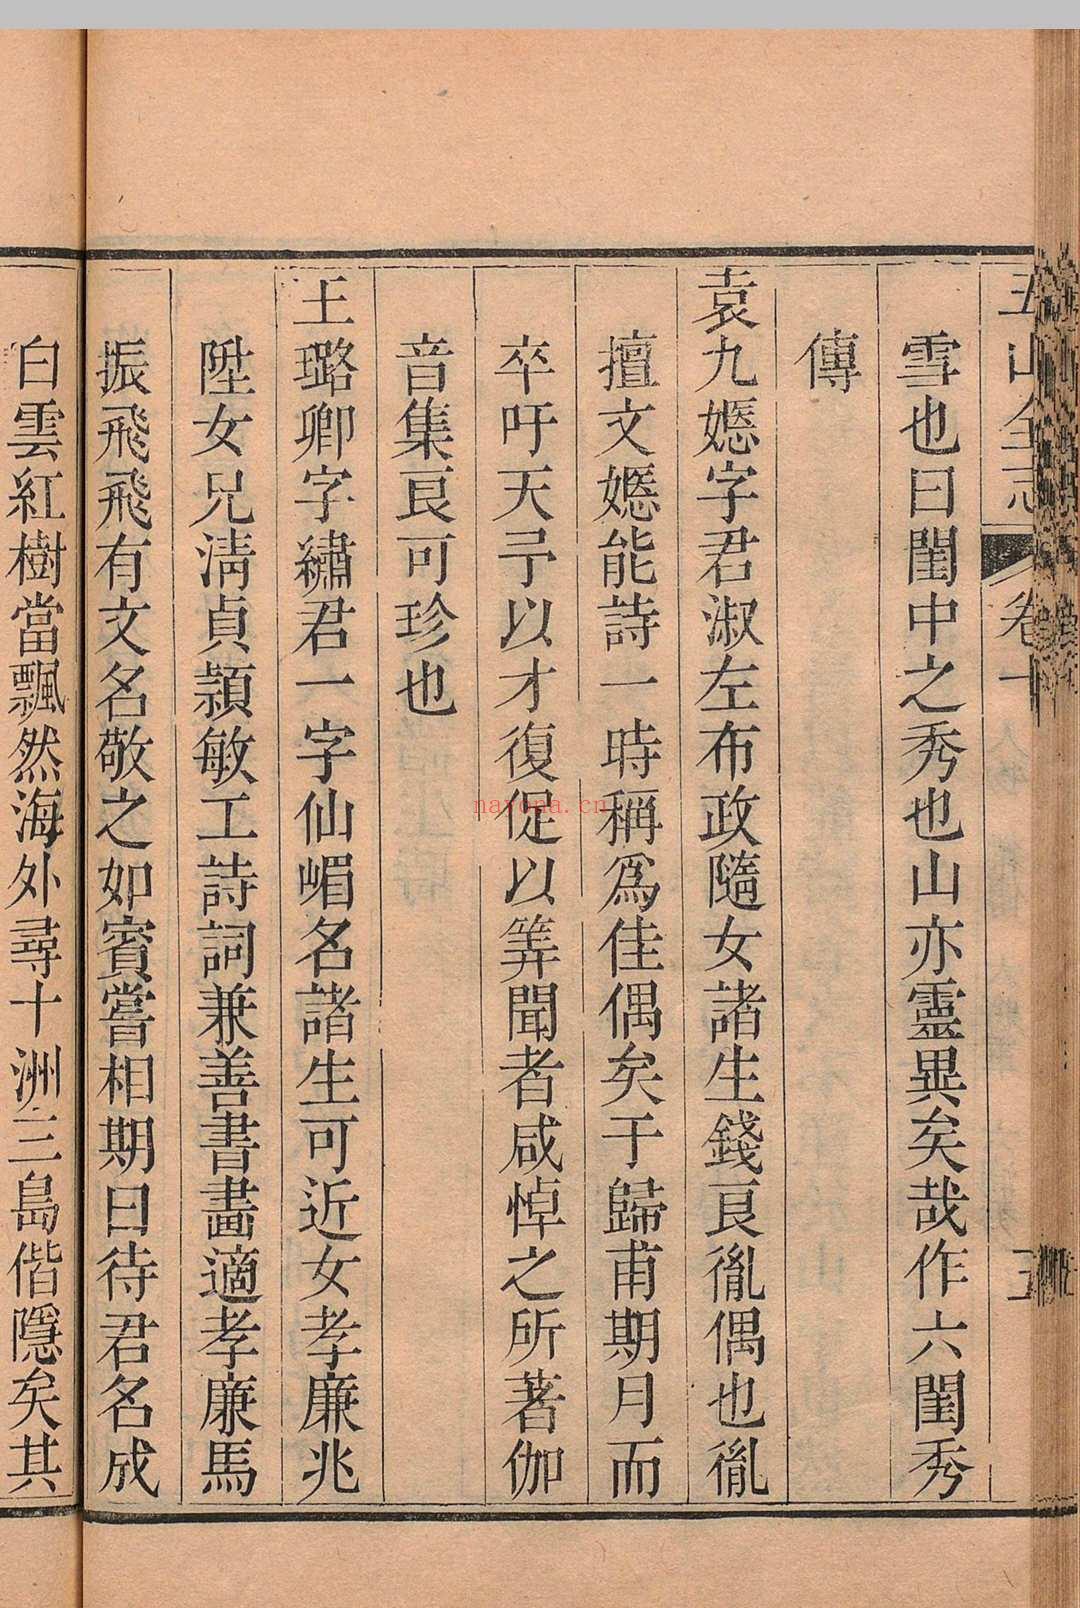 五山全志 卷一
雪也曰閨中之秀也山亦靈異矣哉作六閨秀
傳
袁九嫕字君淑左布政隨女諸生錢良胤偶也胤
擅文嫕能詩一時稱為佳偶矣于歸甫期月而
卒吁天予以才復促以筭聞者咸悼之所著伽
音集良可珍也
王璐卿字繡君一字仙嵋名諸生可近女孝廉兆
陞女兄淸貞穎敏工詩詞兼善書畵適孝廉馬
振飛飛有文名敬之如賓嘗相期曰待君名成
白雲紅樹當飄然海外尋十洲三島偕隱矣其
nayona.cn